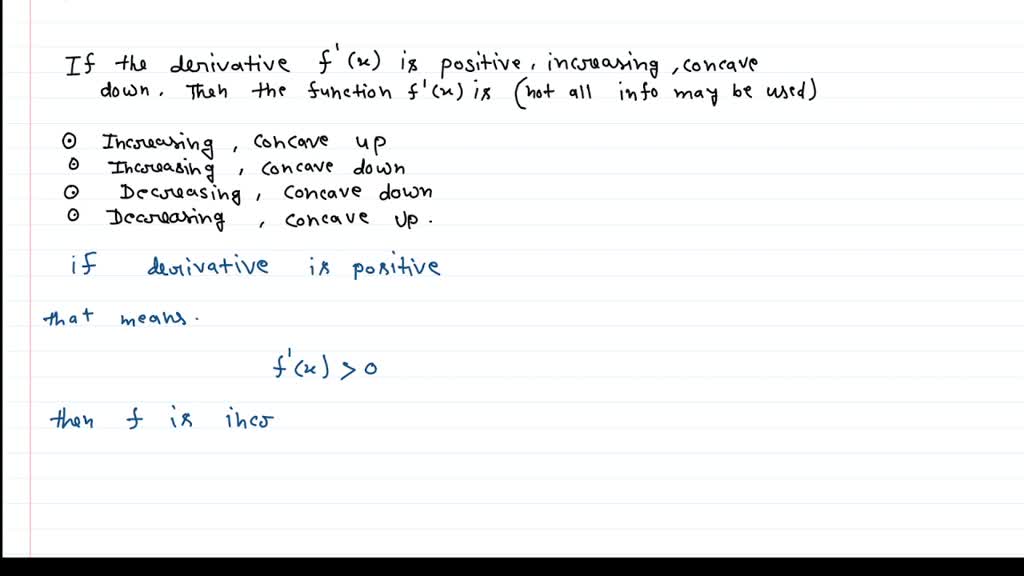 If the derivative f'(x) is positive, increasing, concave
down. Then the function f'(x) is (not all info may be used)
Increasing, concave up
Increasing, concave down
Decreasing, concave down
Decreasing, concave up.
if derivative is positive
that means.
f'(x) > 0
then f is incr